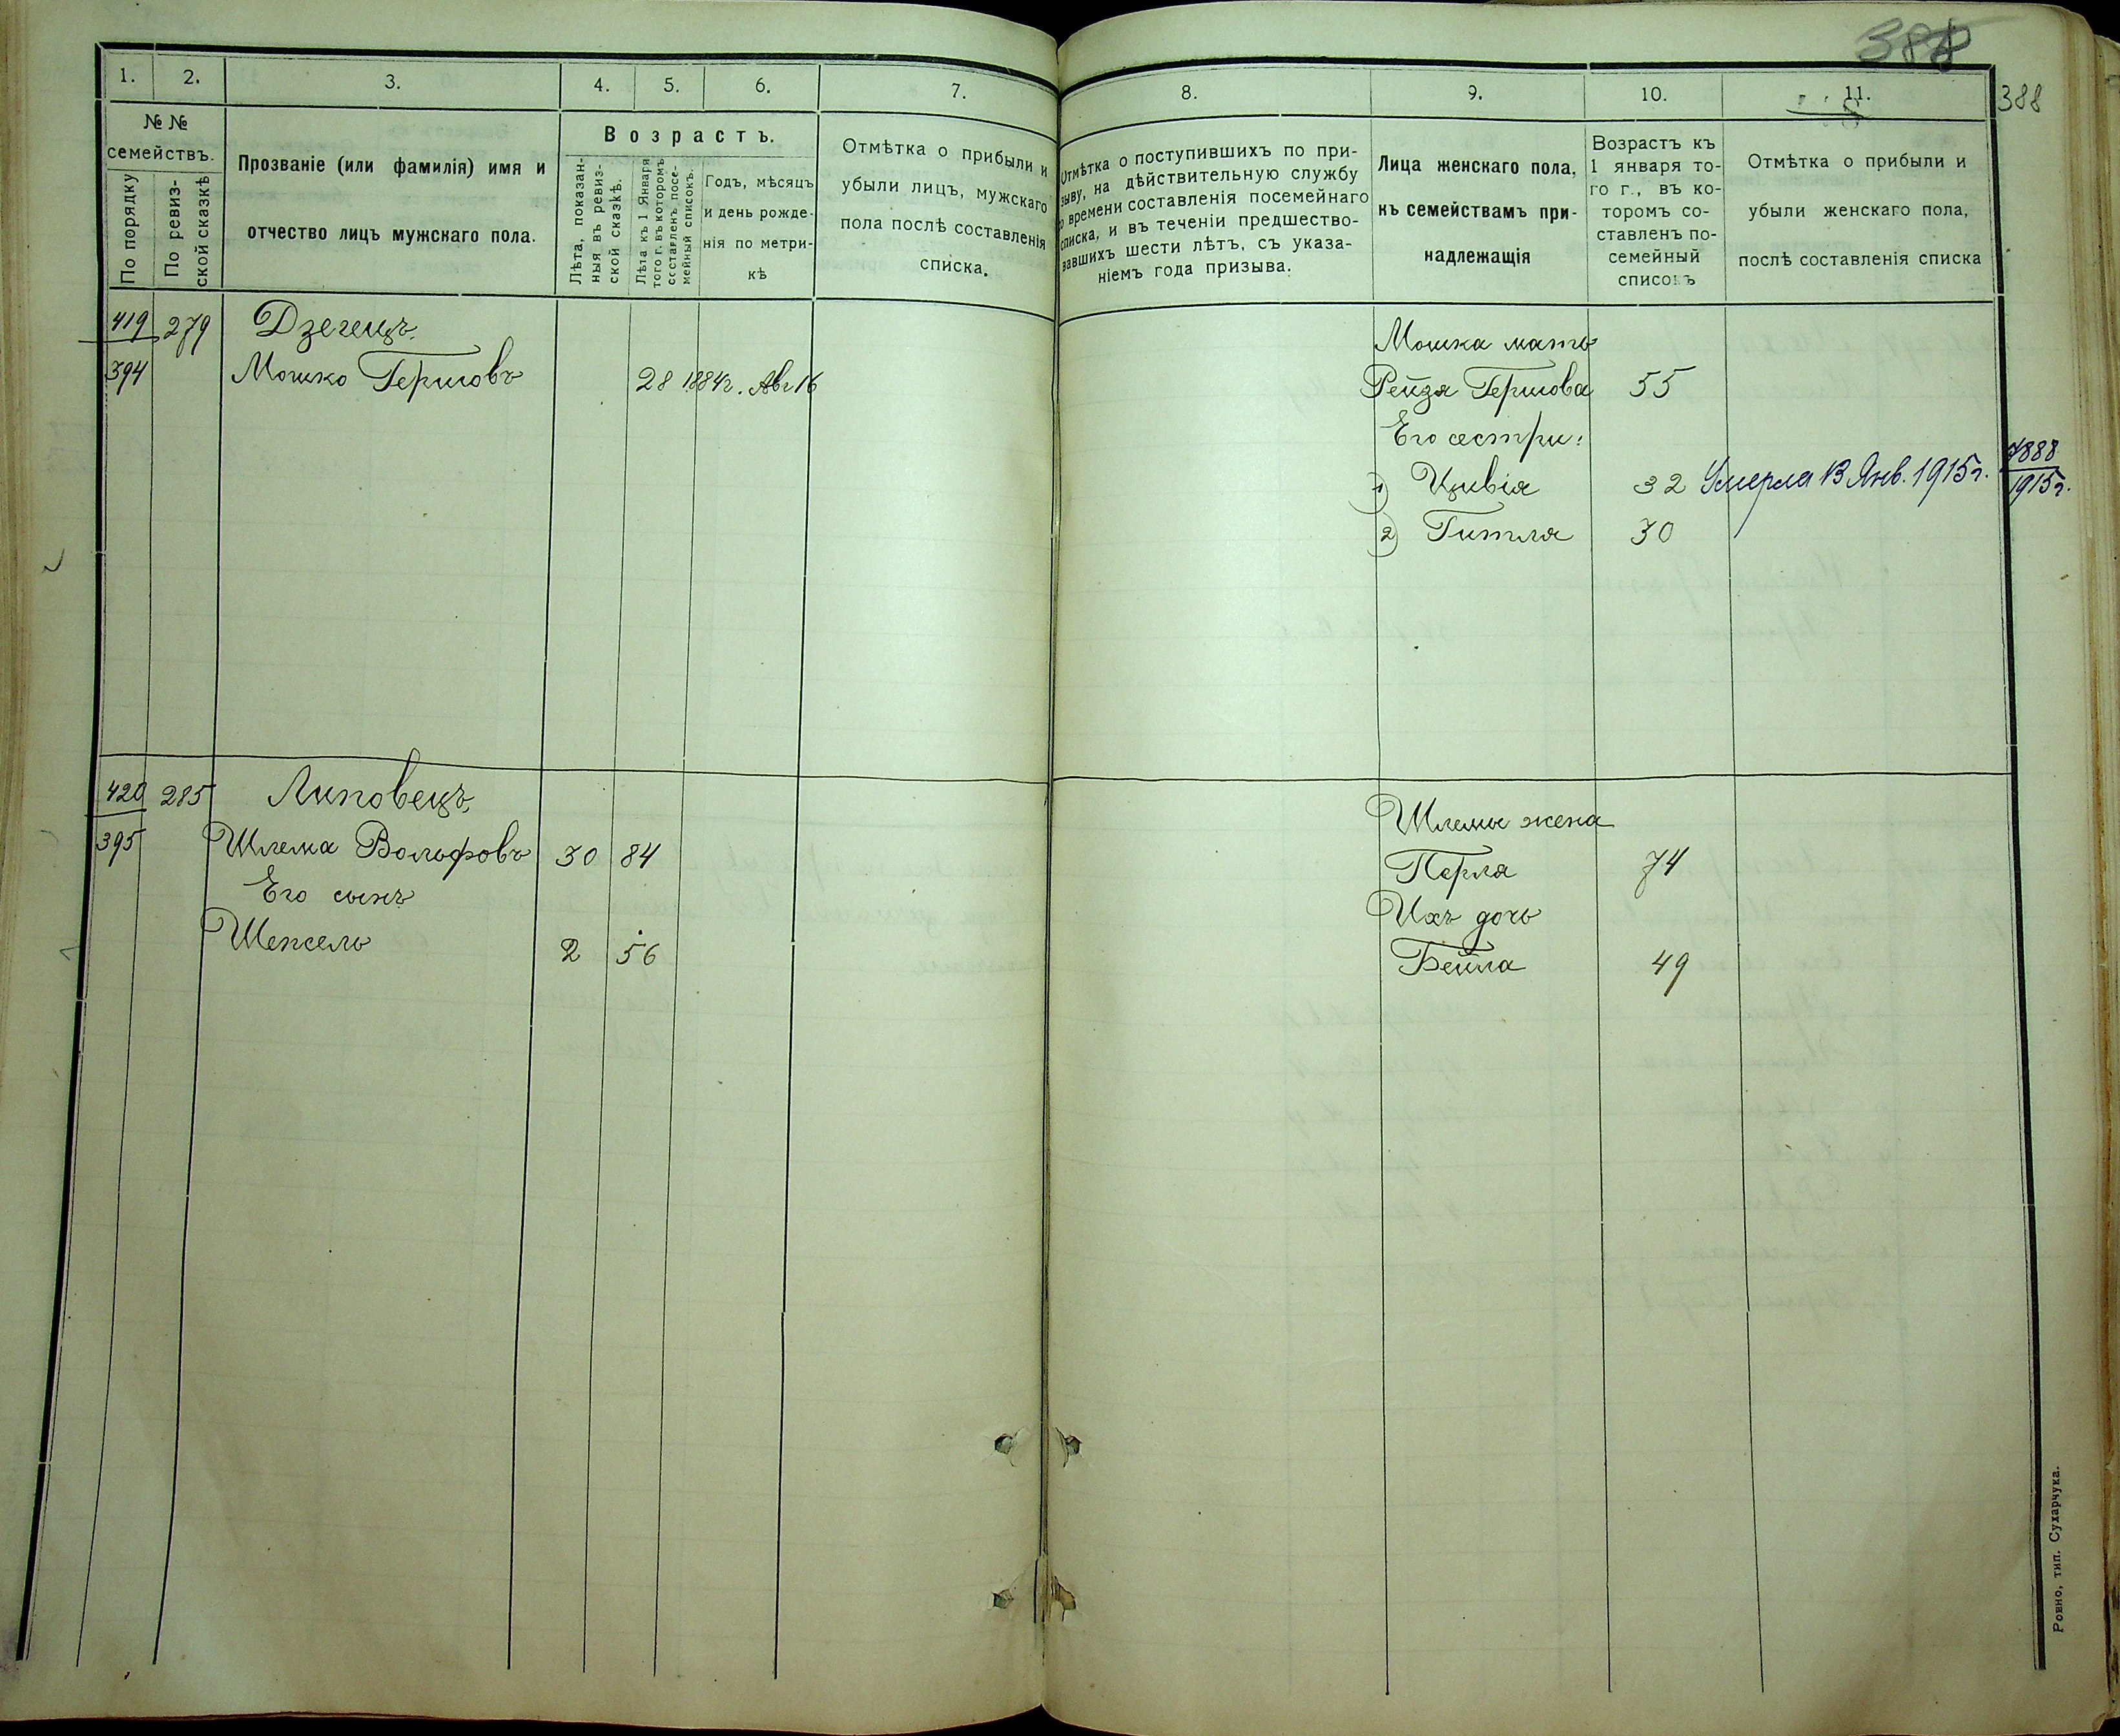 388
388
1. 2. 3. 4. 5. 6. 7. 8. 9. 10. 11.
№ №
семействъ.
По порядку
По ревиз-
ской сказкѣ
Прозваніе (или фамилія) имя и
отчество лицъ мужскаго пола.
Возрастъ.
Лѣта, показан-
ныя въ ревиз-
ской сказкѣ.
Лѣта къ 1 Января
того г. въ которомъ
составленъ посе-
мейный списокъ.
Годъ, мѣсяцъ
и день рожде-
нія по метри-
кѣ
Отмѣтка о прибыли и
убыли лицъ, мужскаго
пола послѣ составленія
списка.
Отмѣтка о поступившихъ по при-
зыву, на дѣйствительную службу
о времени составленія посемейнаго
списка, и въ теченіи предшество-
вавшихъ шести лѣтъ, съ указа-
ніемъ года призыва.
Лица женскаго пола,
къ семействамъ при-
надлежащія
Возрастъ къ
1 января то-
го г., въ ко-
торомъ со-
ставленъ по-
семейный
списокъ
Отмѣтка о прибыли и
убыли женскаго пола,
послѣ составленія списка
419 279 Дзегецъ
394 Мошко Гершовъ 28 1884г. Авг 16
Мошка мать
Рейзя Гершова 55
Его сестри:
1) Цивія 32 Умерла 13 Янв. 1915г. 7888
1915г.
2) Гитля 30
420 285 Липовецъ
395 Шлема Вольфовъ 30 84
Его сынъ
Шепсель 2 56
Шлемы жена
Перля 74
Ихъ дочь
Бейла 49
Ровно, тип. Сухарчука.